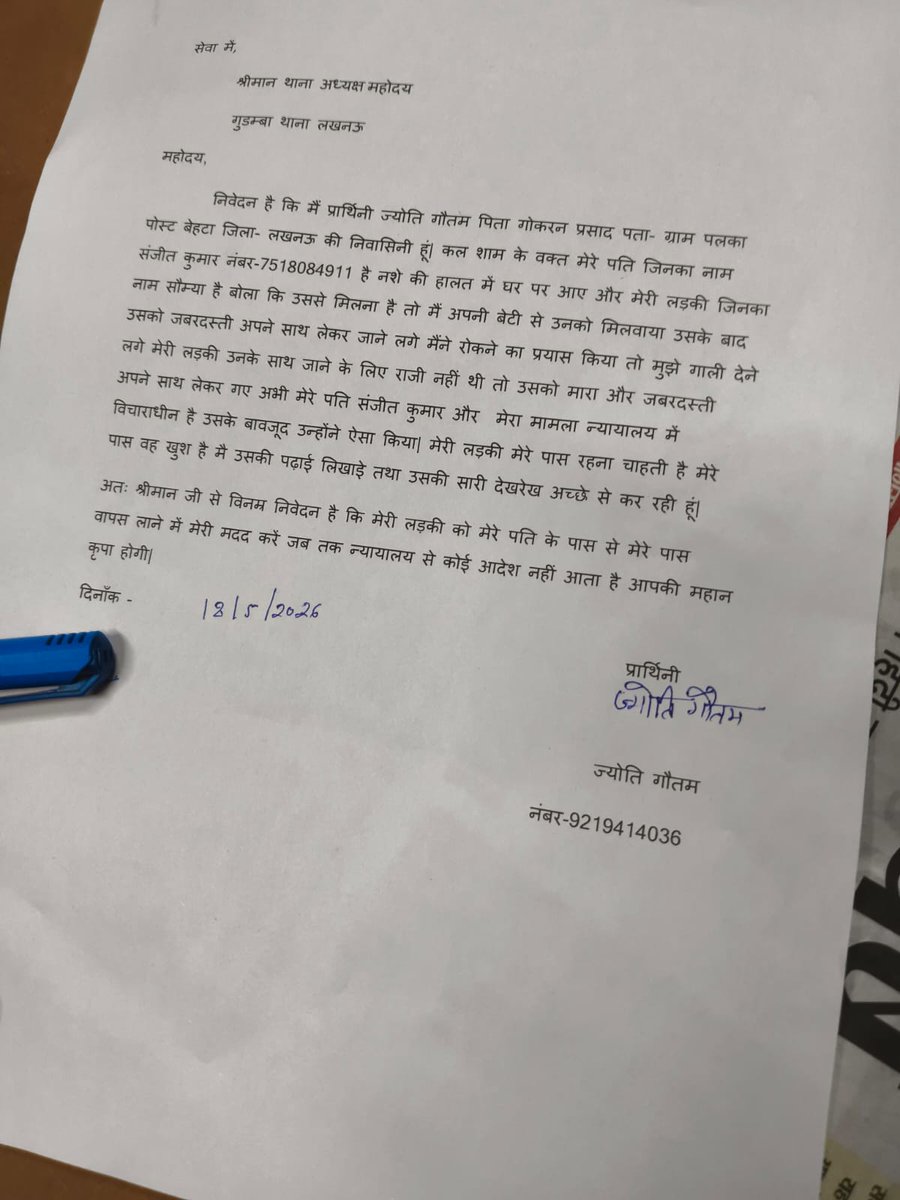 सेवा में,
श्रीमान थाना अध्यक्ष महोदय
गुडम्बा थाना लखनऊ
महोदय,
निवेदन है कि मैं प्रार्थिनी ज्योति गौतम पिता गोकरन प्रसाद पता- ग्राम पलका
पोस्ट बेहटा जिला- लखनऊ की निवासिनी हूं| कल शाम के वक्त मेरे पति जिनका नाम
संजीत कुमार नंबर-7518084911 है नशे की हालत में घर पर आए और मेरी लड़की जिनका
नाम सौम्या है बोला कि उससे मिलना है तो मैं अपनी बेटी से उनको मिलवाया उसके बाद
उसको जबरदस्ती अपने साथ लेकर जाने लगे मैंने रोकने का प्रयास किया तो मुझे गाली देने
लगे मेरी लड़की उनके साथ जाने के लिए राजी नहीं थी तो उसको मारा और जबरदस्ती
अपने साथ लेकर गए अभी मेरे पति संजीत कुमार और मेरा मामला न्यायालय में
विचाराधीन है उसके बावजूद उन्होंने ऐसा किया| मेरी लड़की मेरे पास रहना चाहती है मेरे
पास वह खुश है मै उसकी पढ़ाई लिखाडे तथा उसकी सारी देखरेख अच्छे से कर रही हूं|
अतः श्रीमान जी से विनम्र निवेदन है कि मेरी लड़की को मेरे पति के पास से मेरे पास
वापस लाने में मेरी मदद करें जब तक न्यायालय से कोई आदेश नहीं आता है आपकी महान
कृपा होगी|
दिनाँक - 18/5/2026
प्रार्थिनी
ज्योति गौतम
ज्योति गौतम
नंबर-9219414036